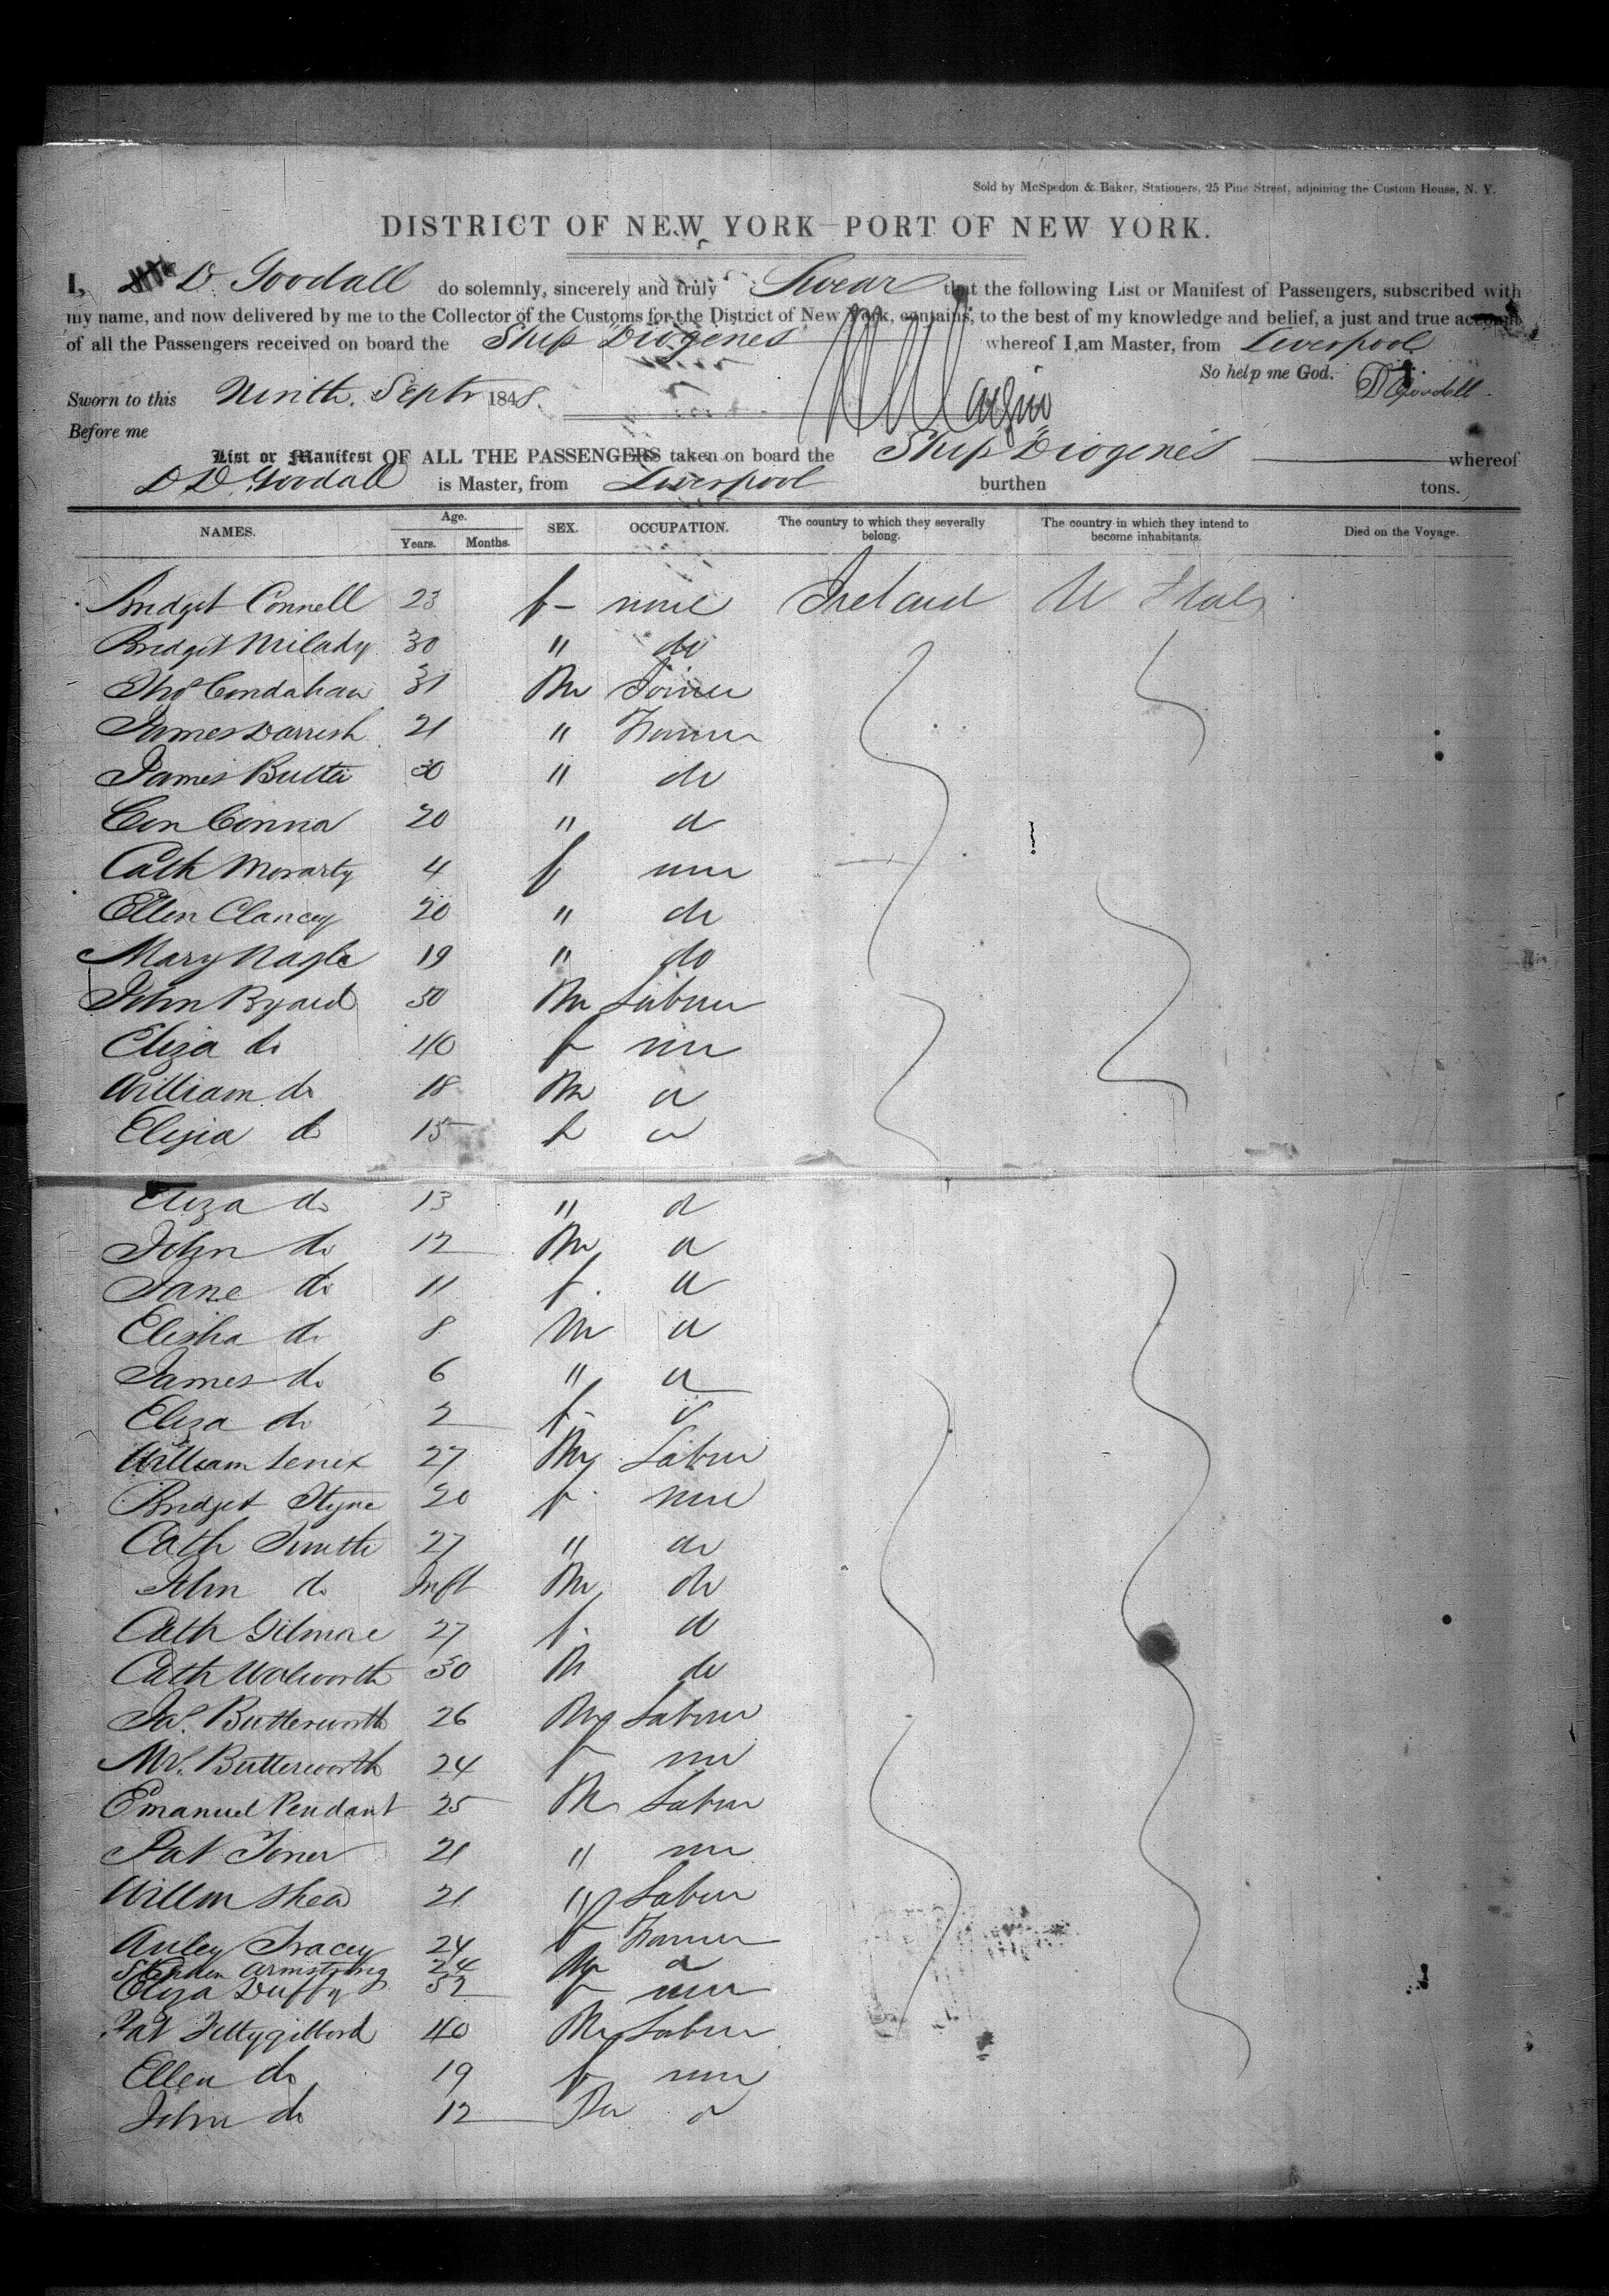 Sold by McSpedon & Baker, Stationers, 25 Pine Street, adjoining the Custom House, N. Y.
DISTRICT OF NEW YORK—PORT OF NEW YORK.
I, D. Goodall do solemnly, sincerely and truly Swear that the following List or Manifest of Passengers, subscribed with
my name, and now delivered by me to the Collector of the Customs for the District of New York, contains, to the best of my knowledge and belief, a just and true account
of all the Passengers received on board the Ship Diogenes whereof I am Master, from Liverpool
So help me God. D Goodall
Sworn to this Ninth. Septr 1848.
Before me
List or Manifest OF ALL THE PASSENGERS taken on board the Ship Diogenes whereof
D D. Goodall is Master, from Liverpool burthen tons.
NAMES. Age. Years. Months. SEX. OCCUPATION. The country to which they severally belong. The country in which they intend to become inhabitants. Died on the Voyage.
Bridget Connell 23 f none Ireland U States
Bridget Milady 30 " do
Thos Condahan 31 M Joiner
James Darrish 21 " Farmer
James Butler 30 " do
Con Connor 20 " do
Cath Morarty 4 f none
Ellen Clancey 20 " do
Mary Nagle 19 " do
John 50 M Labour
Eliza do 40 f none
William do 18 M do
do 15 f do
Eliza do 13 " do
John do 12 M do
Jane do 11 f do
Elisha do 8 M do
James do 6 " do
Eliza do 2 f do
William Lenix 27 M Labour
Bridget 20 f none
Cath Smith 27 " do
John do Inft M do
Cath Gilmore 27 f do
Cath Walworth 30 M do
Jas. Butterworth 26 M Labour
Mrs. Butterworth 24 f none
Emanuel Pendant 25 M Labour
Pat Toner 21 " none
Willm Shea 21 " Labour
Tracey 24 f Farmer
Stephen Armstrong 24 M do
Eliza Duffy 52 f none
Pat 40 M Labour
Ellen do 19 f none
John do 12 M do